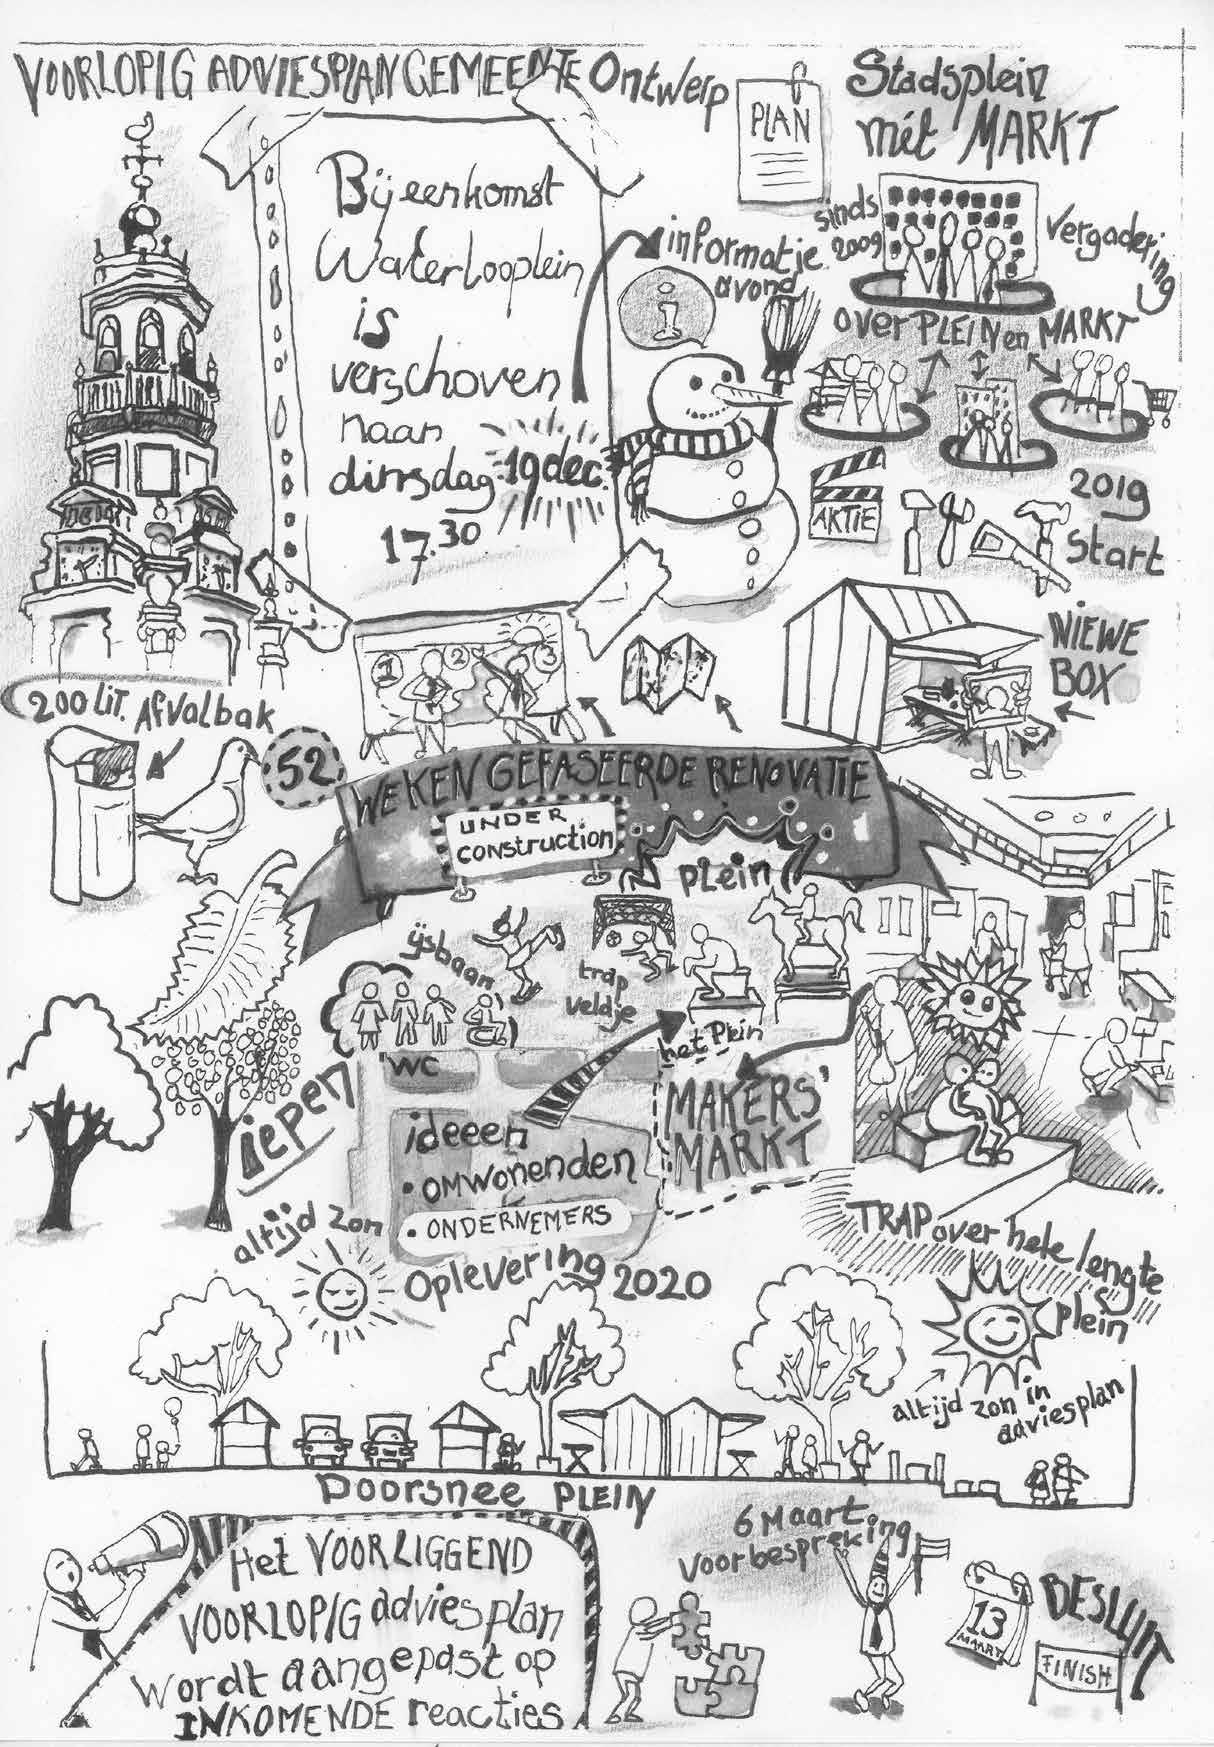 VOORLOPIG ADVIESPLAN GEMEENTE Ontwerp
PLAN
Stadsplein
mét MARKT
Bijeenkomst
Waterlooplein
is
verschoven
naar
dinsdag 19 dec.
17.30
informatie
avond
i
sinds
2009
vergadering
over PLEIN en MARKT
AKTIE
2019
Start
1 2 3
NIEWE
BOX
200 Lit. Afvalbak
52
WEKEN GEFASEERDE RENOVATIE
UNDER
construction
PLein
ijsbaan
trap
veldje
het Plein
WC
MAKERS'
MARKT
iepen
ideeen
• omwonenden
• ONDERNEMERS
altijd zon
Oplevering 2020
TRAP over hele lengte
plein
altijd zon in
adviesplan
Doorsnee PLEIN
Het VOORLIGGEND
VOORLOPIG adviesplan
Wordt aangepast op
INKOMENDE reacties
6 Maart
voorbespreking
13
MAART
BESLUIT
FINISH